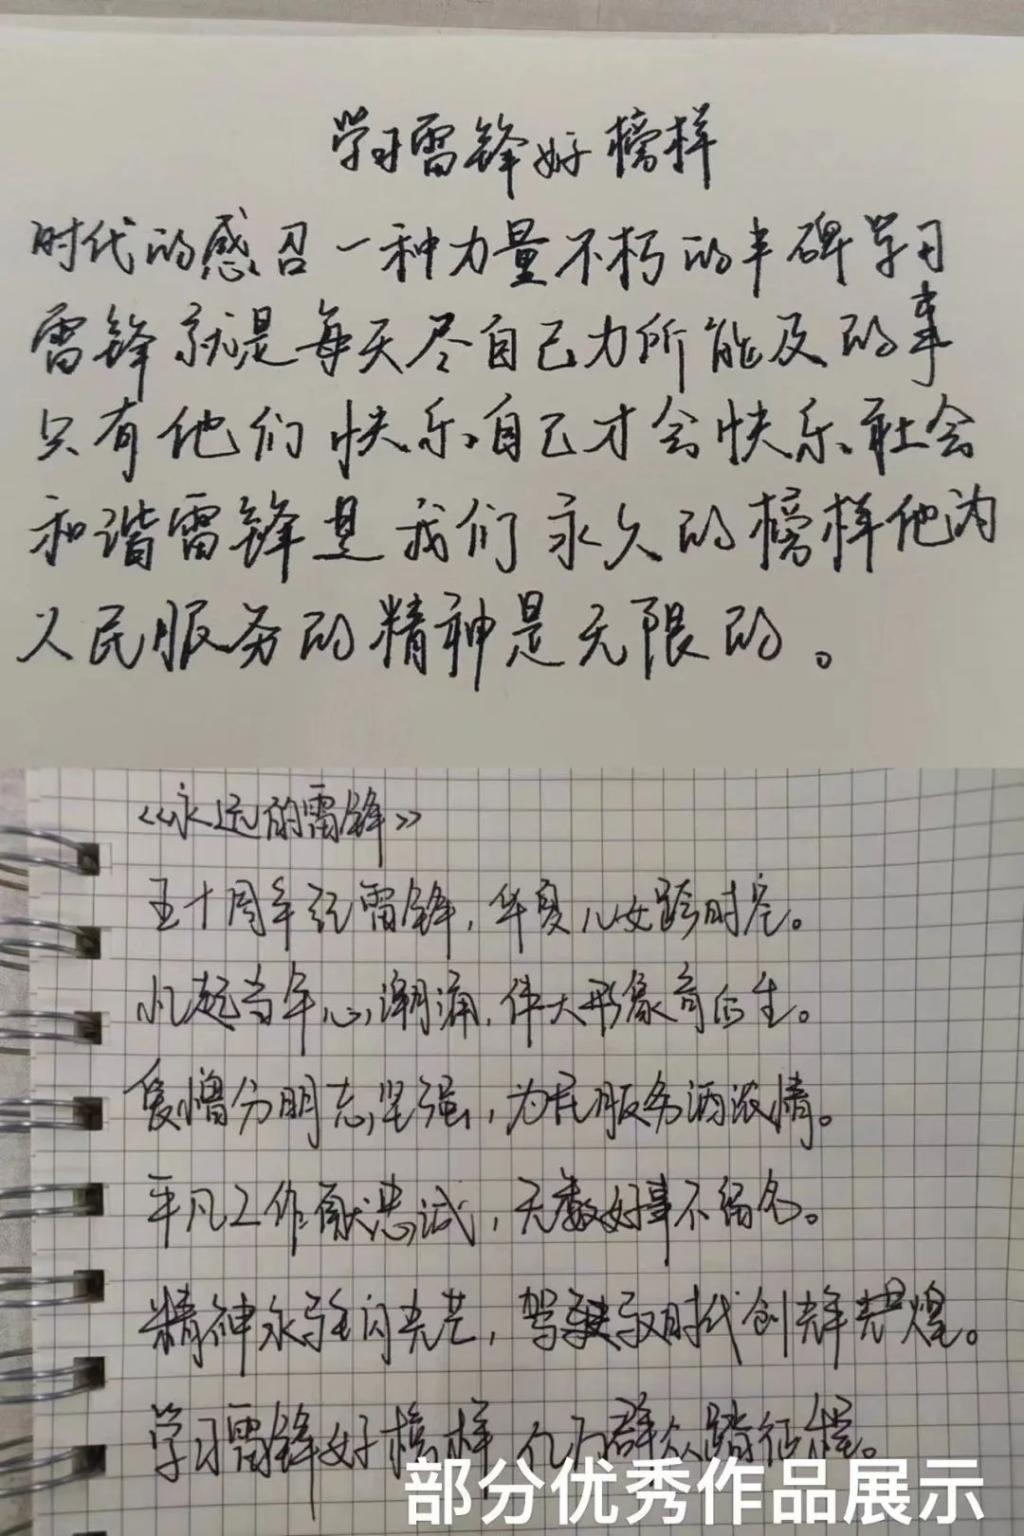 学习雷锋好榜样
时代的感召一种力量不朽的丰碑学习
雷锋就是每天尽自己力所能及的事
只有他们快乐自己才会快乐社会
和谐雷锋是我们永久的榜样他为
人民服务的精神是无限的。
《永远的雷锋》
五十周年记雷锋,华夏儿女跨时空。
忆起当年心潮涌,伟大形象育后生。
爱憎分明志坚强,为民服务洒浓情。
平凡工作献忠诚,无数好事不留名。
精神永驻闪光芒,驾驶驭时代创辉煌。
学习雷锋好榜样,化为群众踏征程。
部分优秀作品展示